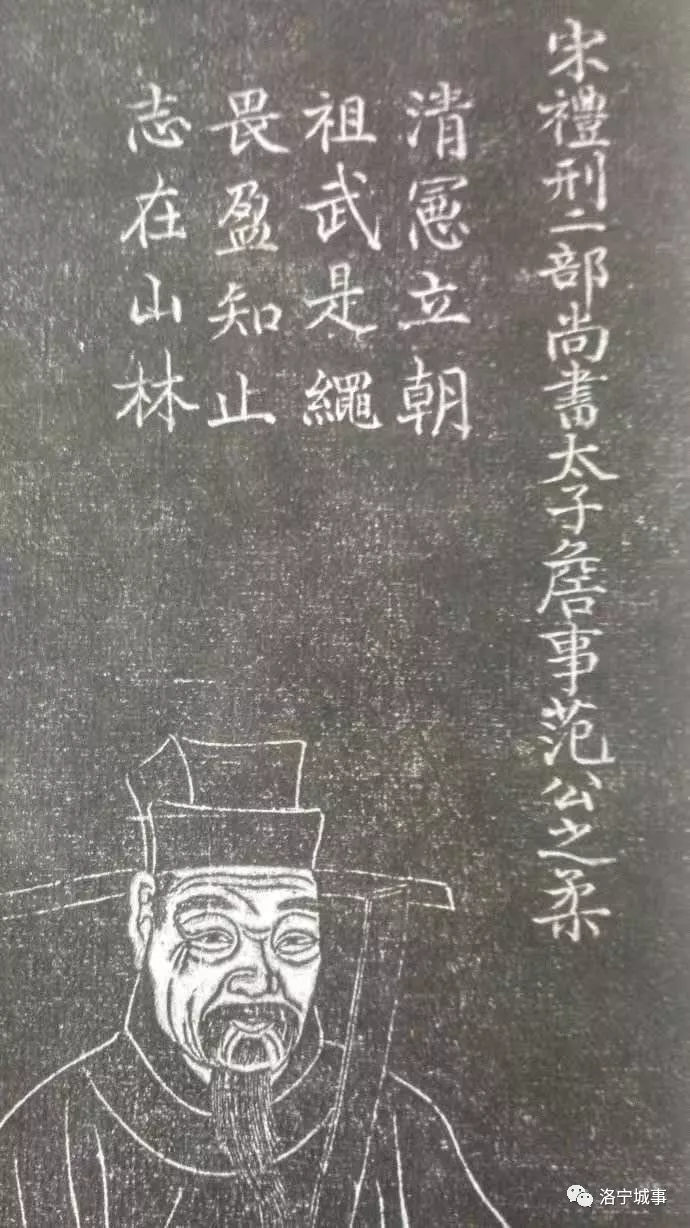 宋禮刑二部尚書太子詹事范公之柔
清憲立朝
祖武是繩
畏盈知止
志在山林
洛宁城事